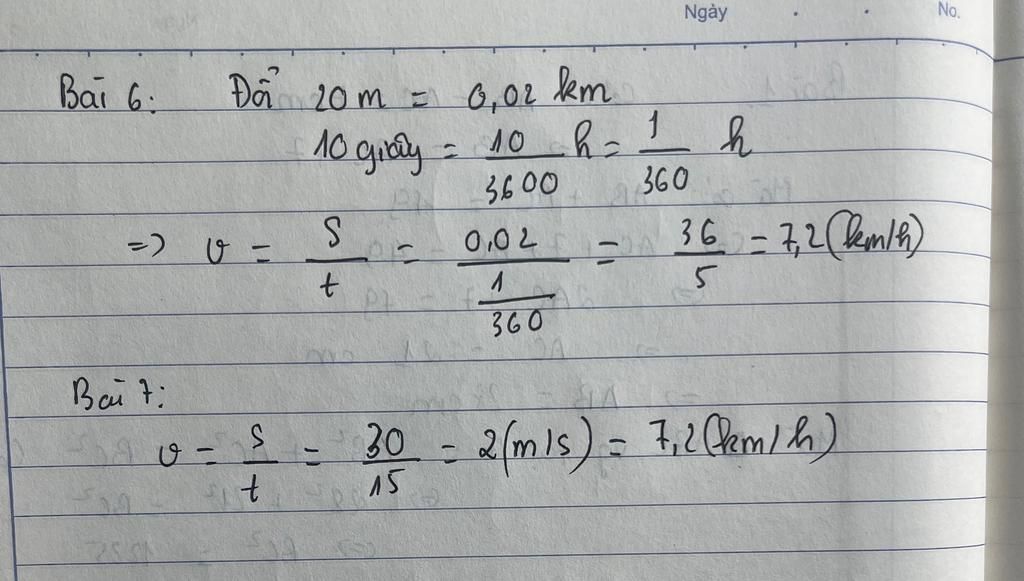 Ngày . . No.
Bài 6: Đổi 20 m = 0,02 km
10 giây = 10/3600 h = 1/360 h
=> v = S/t = 0,02/(1/360) = 36/5 = 7,2 (km/h)
Bài 7:
v = S/t = 30/15 = 2 (m/s) = 7,2 (km/h)